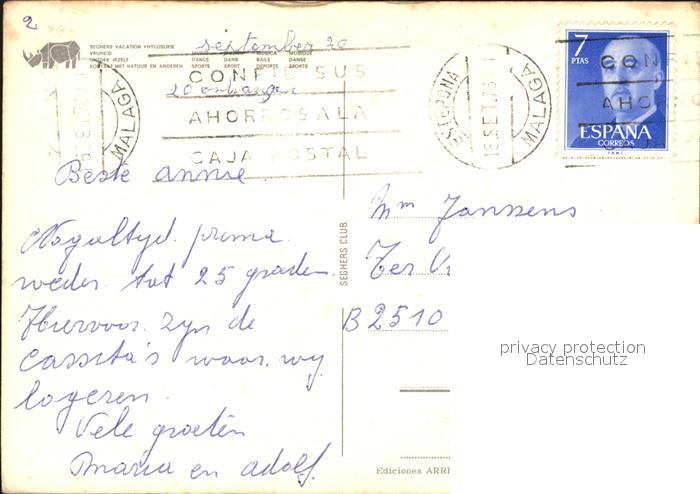 2
SEGHERS VACATION PHYLOSOFIE
VRIJHEID
ONTDEK JEZELF
KONTAKT MET NATUUR EN ANDEREN
MUZIEK MUSIC MUSICA MUSIQUE
DANCE DANS BAILE DANSE
SPORTS SPORT DEPORTE SPORTS
september 20
CONFIE SUS
AHORROS A LA
CAJA POSTAL
MALAGA
ESTEPONA
MALAGA
7
PTAS
ESPAÑA
CORREOS
F.N.M.T.
CONFI
AHOR
Beste annie
Nogaltyd prima
weder tot 25 graden.
Hiervoor zyn de
Cassita's waar wy
logeren.
Vele groeten
Maria en Adolf.
SEGHERS CLUB.
Mm Janssens
Ter
B 2510
privacy protection
Datenschutz
Ediciones ARRI